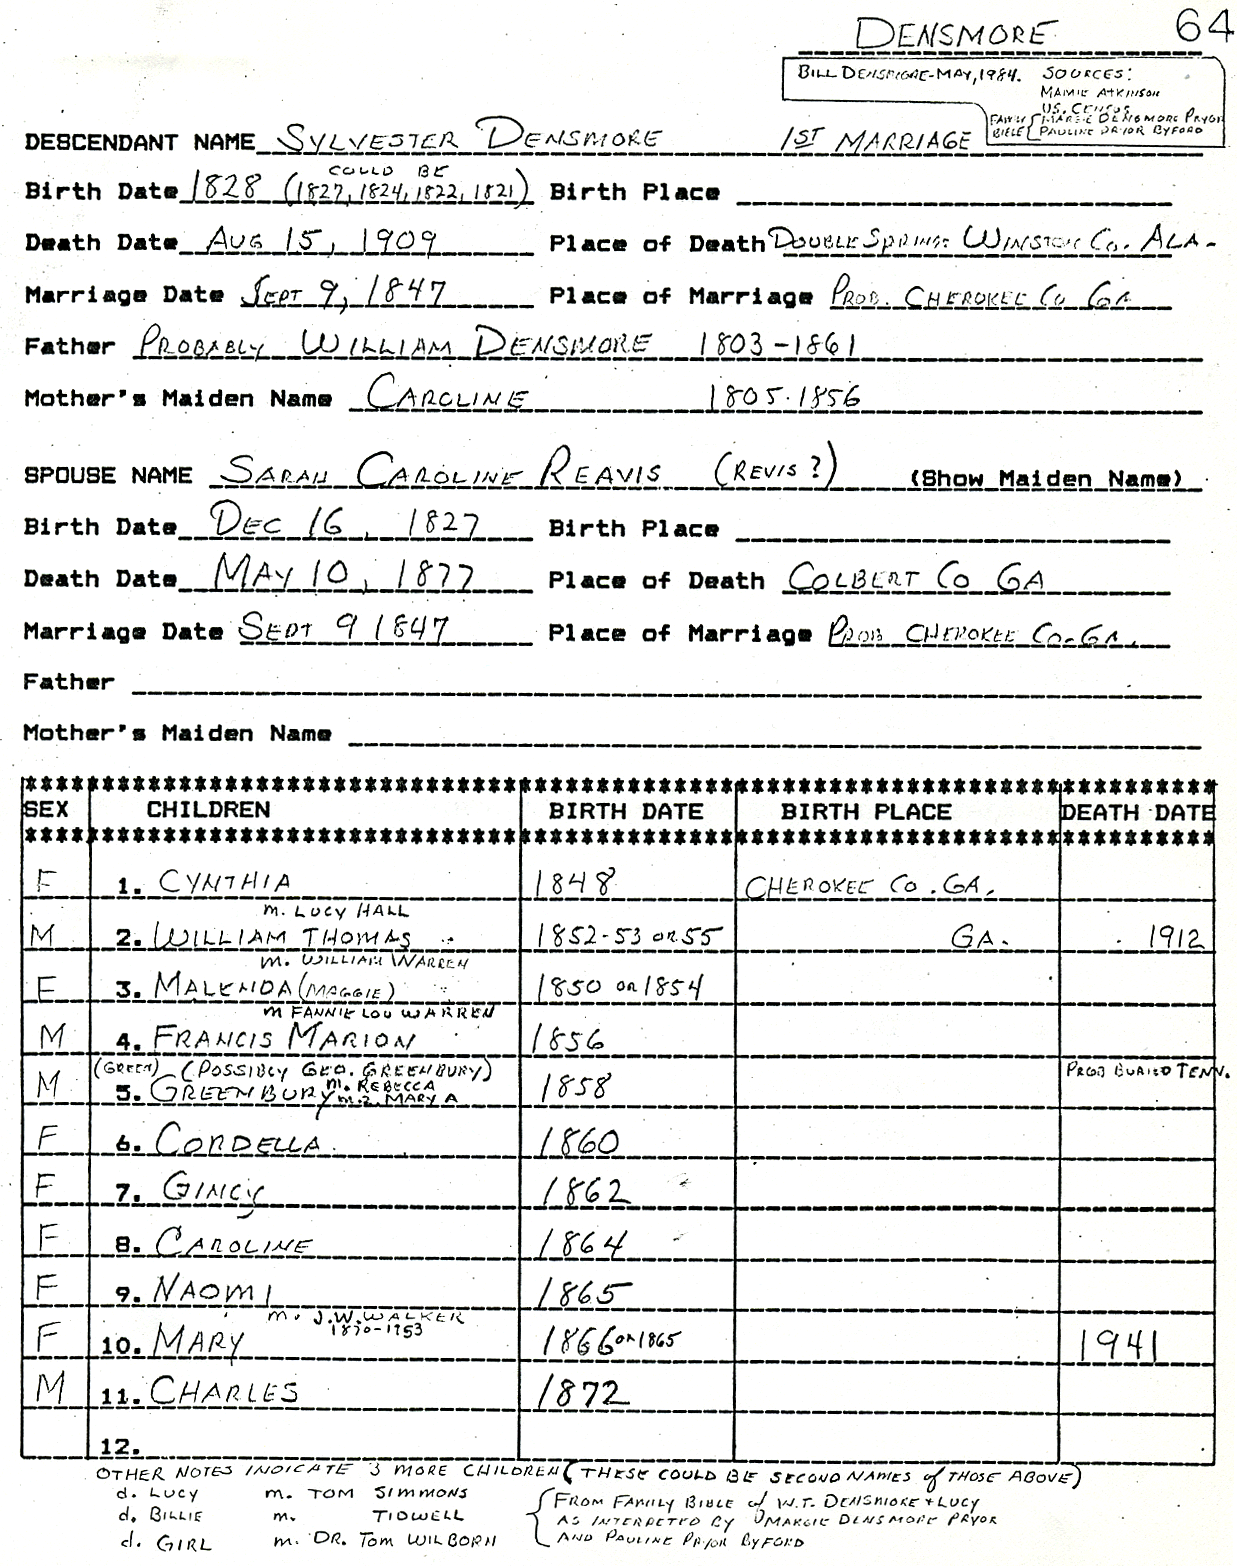 DENSMORE 64
BILL DENSMORE-MAY, 1984. SOURCES:
MAMIE ATKINSON
US. CENSUS
FAMILY BIBLE { MARGIE DENSMORE PRYOR
PAULINE PRYOR BYFORD
DESCENDANT NAME SYLVESTER DENSMORE 1ST MARRIAGE
COULD BE
Birth Date 1828 (1827, 1824, 1822, 1821) Birth Place
Death Date AUG 15, 1909 Place of Death DOUBLE SPRINGS WINSTON CO. ALA-
Marriage Date SEPT 9, 1847 Place of Marriage PROB. CHEROKEE CO GA
Father PROBABLY WILLIAM DENSMORE 1803-1861
Mother's Maiden Name CAROLINE 1805-1856
SPOUSE NAME SARAH CAROLINE REAVIS (REVIS?) (Show Maiden Name)
Birth Date DEC 16, 1827 Birth Place
Death Date MAY 10, 1877 Place of Death COLBERT CO GA
Marriage Date SEPT 9 1847 Place of Marriage PROB CHEROKEE CO-GA.
Father
Mother's Maiden Name
SEX CHILDREN BIRTH DATE BIRTH PLACE DEATH DATE
F 1. CYNTHIA 1848 CHEROKEE CO. GA.
m. LUCY HALL
M 2. WILLIAM THOMAS 1852-53 OR 55 GA. 1912
m. WILLIAM WARREN
F 3. MALENDA (MAGGIE) 1850 OR 1854
m FANNIE LOU WARREN
M 4. FRANCIS MARION 1856
(GREEN) (POSSIBLY GEO. GREENBURY) PROB BURIED TENN.
m. REBECCA
M 5. GREENBURY m.2. MARY A 1858
F 6. CORDELLA 1860
F 7. GINCY 1862
F 8. CAROLINE 1864
F 9. NAOMI 1865
m. J.W. WALKER
1870-1953
F 10. MARY 1866 OR 1865 1941
M 11. CHARLES 1872
12.
OTHER NOTES INDICATE 3 MORE CHILDREN (THESE COULD BE SECOND NAMES of THOSE ABOVE)
d. LUCY m. TOM SIMMONS { FROM FAMILY BIBLE of W.T. DENSMORE + LUCY
d. BILLIE m. TIDWELL AS INTERPETED BY MARGIE DENSMORE PRYOR
d. GIRL m. DR. TOM WILBORN AND PAULINE PRYOR BYFORD